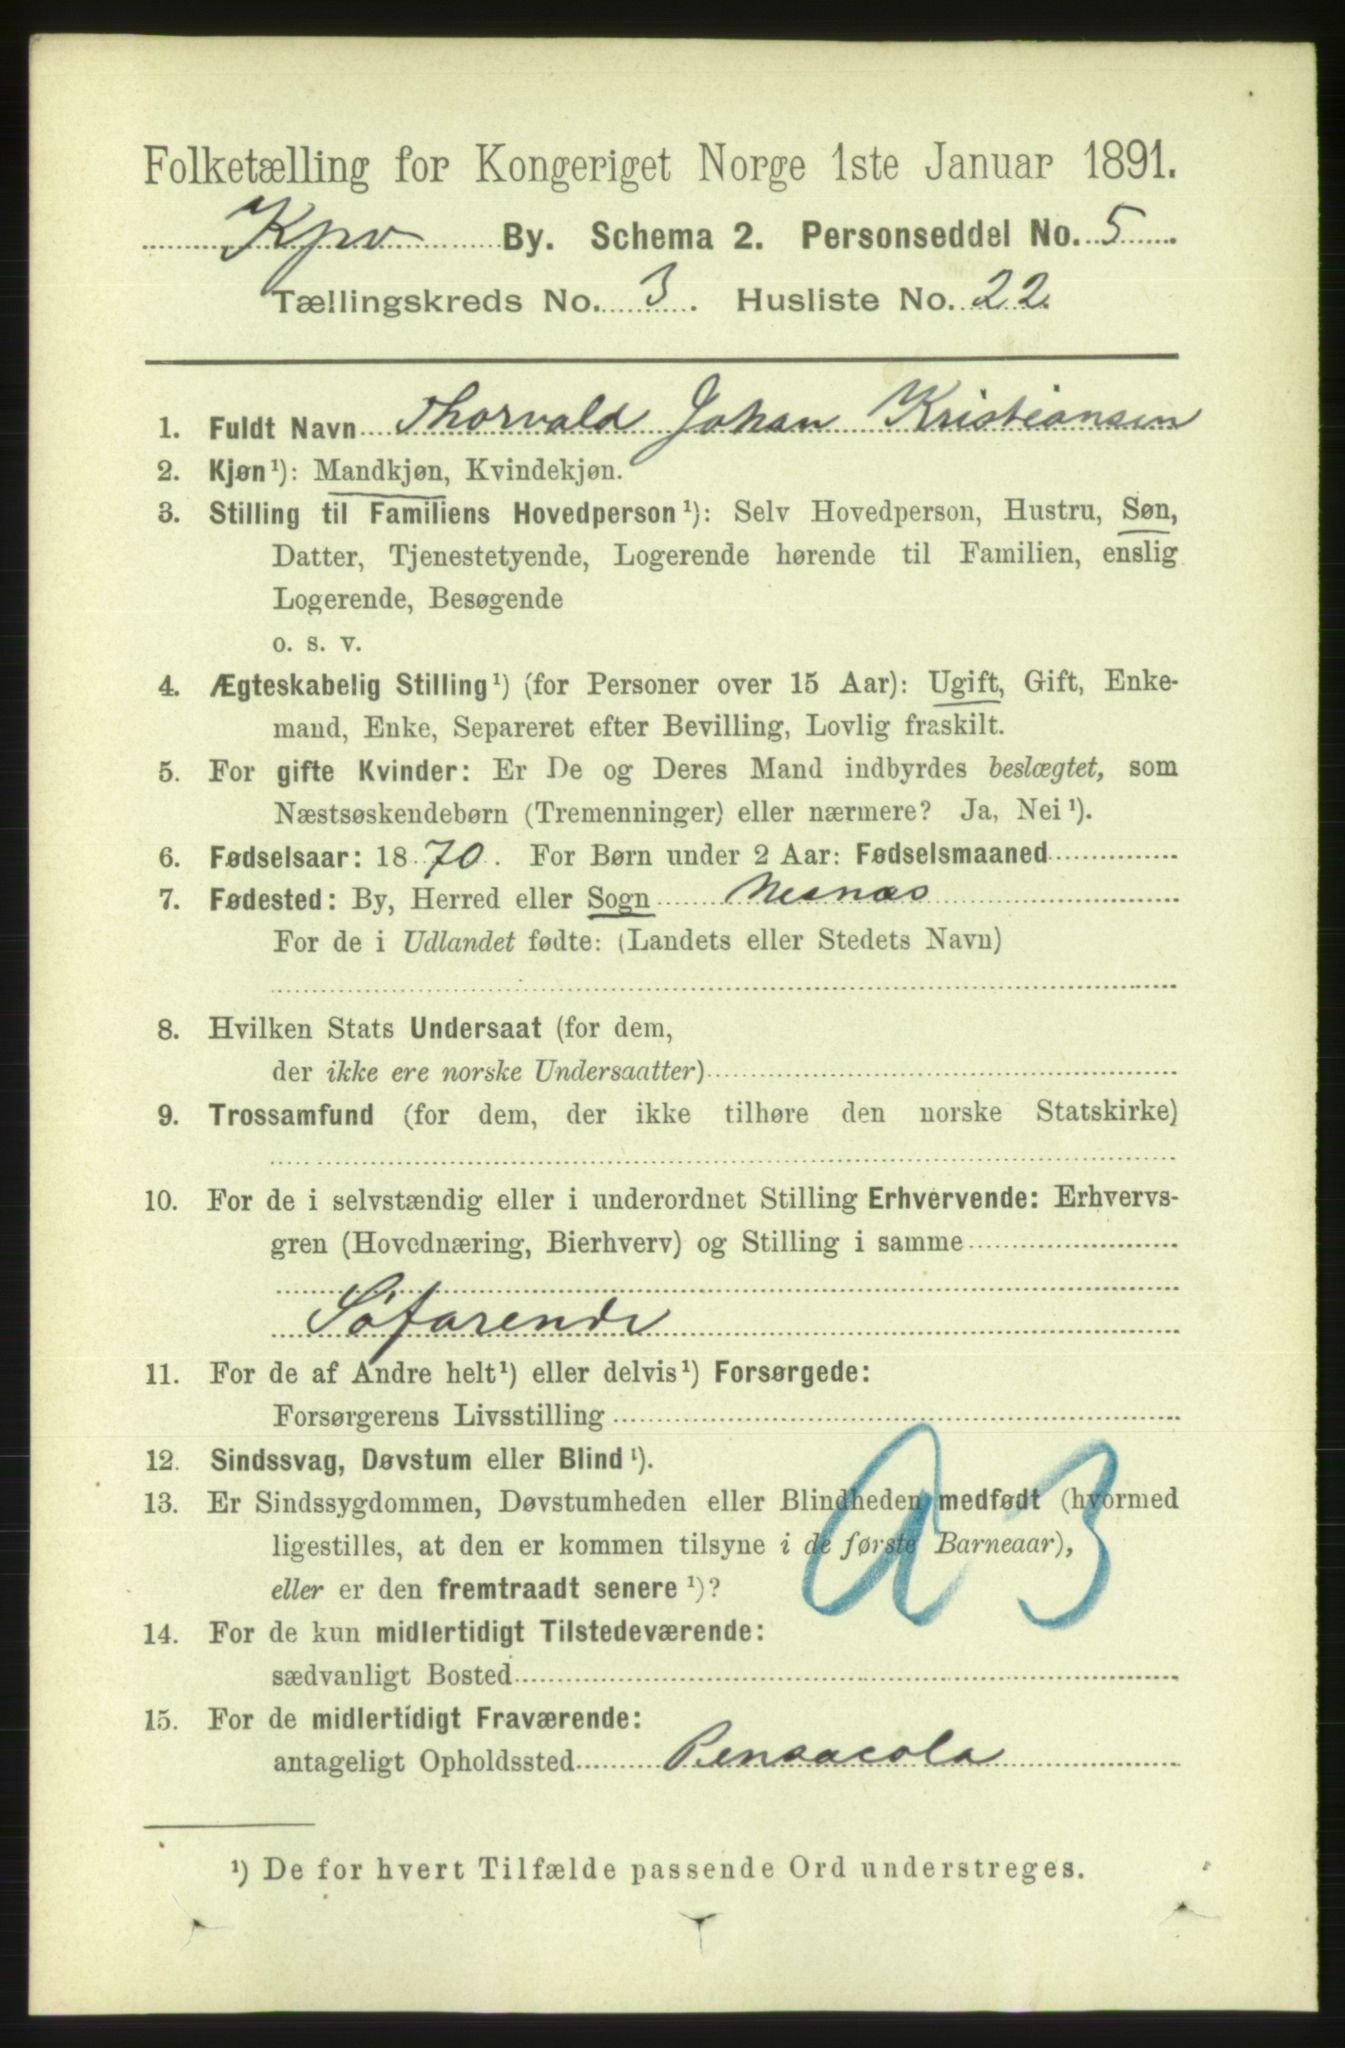 Folketælling for Kongeriget Norge 1ste Januar 1891.
Kpv By. Schema 2. Personseddel No. 5
Tællingskreds No. 3. Husliste No. 22.
1. Fuldt Navn Thorvald Johan Kristiansen
2. Kjøn¹): Mandkjøn, Kvindekjøn.
3. Stilling til Familiens Hovedperson¹): Selv Hovedperson, Hustru, Søn,
Datter, Tjenestetyende, Logerende hørende til Familien, enslig
Logerende, Besøgende
o. s. v.
4. Ægteskabelig Stilling¹) (for Personer over 15 Aar): Ugift, Gift, Enke-
mand, Enke, Separeret efter Bevilling, Lovlig fraskilt.
5. For gifte Kvinder: Er De og Deres Mand indbyrdes beslægtet, som
Næstsøskendebørn (Tremenninger) eller nærmere? Ja, Nei¹).
6. Fødselsaar: 1870. For Børn under 2 Aar: Fødselsmaaned
7. Fødested: By, Herred eller Sogn Nesnæs
For de i Udlandet fødte: (Landets eller Stedets Navn)
8. Hvilken Stats Undersaat (for dem,
der ikke ere norske Undersaatter)
9. Trossamfund (for dem, der ikke tilhøre den norske Statskirke)
10. For de i selvstændig eller i underordnet Stilling Erhvervende: Erhvervs-
gren (Hovednæring, Bierhverv) og Stilling i samme
Søfarende
11. For de af Andre helt¹) eller delvis¹) Forsørgede:
Forsørgerens Livsstilling
12. Sindssvag, Døvstum eller Blind¹).
13. Er Sindssygdommen, Døvstumheden eller Blindheden medfødt (hvormed
ligestilles, at den er kommen tilsyne i de første Barneaar),
eller er den fremtraadt senere¹)?
a 3
14. For de kun midlertidigt Tilstedeværende:
sædvanligt Bosted
15. For de midlertidigt Fraværende:
antageligt Opholdssted Pensacola
¹) De for hvert Tilfælde passende Ord understreges.